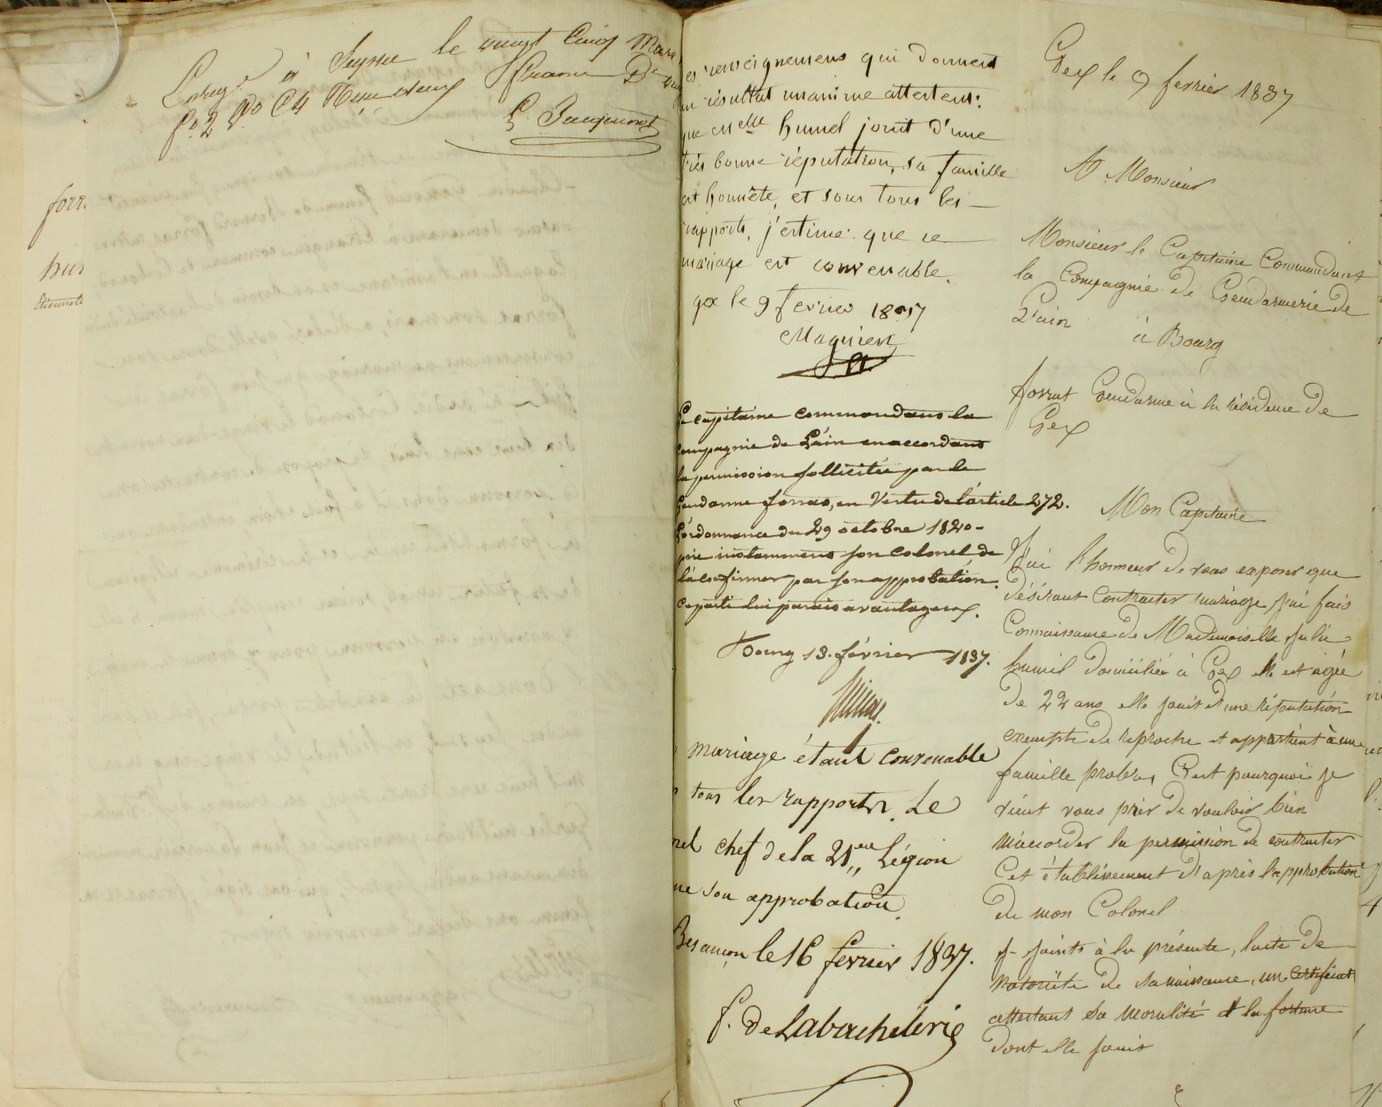 à Seyssel le vingt Cinq Mars
fo 2 Vo C4
forr
hum
Etiennette
es renseignemens qui donnent
un résultat unanime attestent:
que melle humel jouit d'une
très bonne réputation, sa famille
est honnête, et sous tous les
rapports, j'estime que ce
mariage est convenable.
gex le 9 fevrier 1837
Magnien
Le capitaine commandant la
Compagnie de l'ain en accordant
la permission sollicitée par le
Gendarme forrat, en Vertu de l'article 272.
L'ordonnance du 29 octobre 1820
prie instamment son Colonel de
la confirmer par son approbation.
Ce parti lui parait avantageux.
Bourg 13. février 1837.
mariage étant convenable
tous les rapports. Le
nel chef de la 21eme Légion
ne son approbation.
Besançon le 16 fevrier 1837.
f. de Labachelerie
Gex le 9 fevrier 1837
A Monsieur
Monsieur le Capitaine Commandant
la Compagnie de Gendarmerie de
L'ain à Bourg
forrat Gendarme à la résidence de
Gex
Mon Capitaine
J'ai l'honneur de vous exposer que
désirant contracter mariage j'ai fais
Connaissance de Mademoiselle Julie
humel domiciliée à Gex elle est agée
de 22 ans elle jouit d'une réputation
exempte de reproche et appartient à une
famille probre, C'est pourquoi je
vient vous prier de vouloir bien
m'accorder la permission de contracter
Cet établissement d'après l'approbation
de mon Colonel
J- joints à la présente, l'acte de
Notorièté de sa naissance, un certificat
attestant sa moralité et la fortune
dont elle jouit